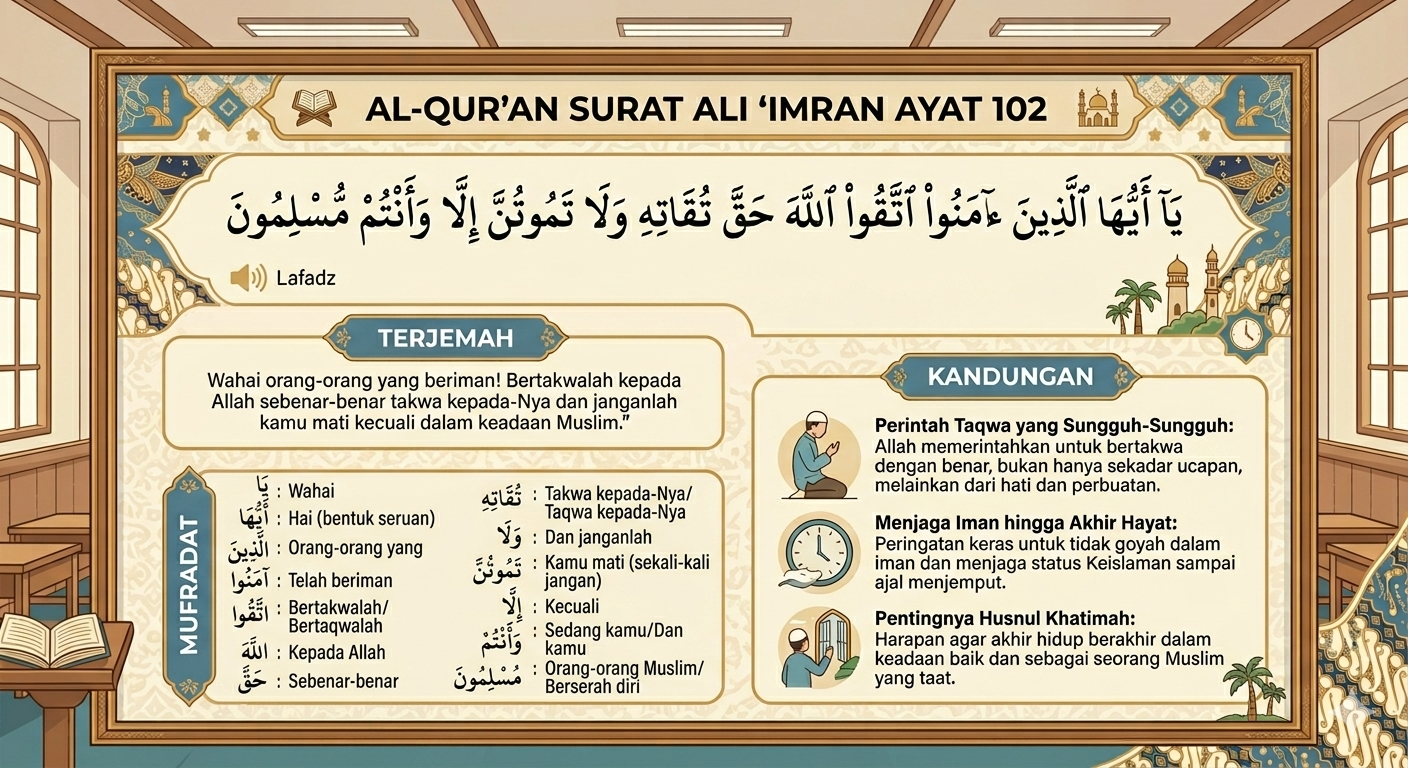 AL-QUR’AN SURAT ALI ‘IMRAN AYAT 102
يَآ أَيُّهَا ٱلَّذِينَ ءَآمَنُواْ ٱتَّقُواْ ٱللَّهَ حَقَّ تُقَاتِهِ وَلَا تَمُوتُنَّ إِلَّا وَأَنْتُمْ مُّسْلِمُونَ
Lafadz
TERJEMAH
Wahai orang-orang yang beriman! Bertakwalah kepada
Allah sebenar-benar takwa kepada-Nya dan janganlah
kamu mati kecuali dalam keadaan Muslim.”
MUFRADAT
يَا : Wahai
أَيُّهَا : Hai (bentuk seruan)
الَّذِينَ : Orang-orang yang
آمَنُوا : Telah beriman
اتَّقُوا : Bertakwalah/
Bertaqwalah
اللَّهَ : Kepada Allah
حَقَّ : Sebenar-benar
تُقَاتِهِ : Takwa kepada-Nya/
Taqwa kepada-Nya
وَلَا : Dan janganlah
تَمُوتُنَّ : Kamu mati (sekali-kali
jangan)
إِلَّا : Kecuali
وَأَنْتُمْ : Sedang kamu/Dan
kamu
مُسْلِمُونَ : Orang-orang Muslim/
Berserah diri
KANDUNGAN
Perintah Taqwa yang Sungguh-Sungguh:
Allah memerintahkan untuk bertakwa
dengan benar, bukan hanya sekadar ucapan,
melainkan dari hati dan perbuatan.
Menjaga Iman hingga Akhir Hayat:
Peringatan keras untuk tidak goyah dalam
iman dan menjaga status Keislaman sampai
ajal menjemput.
Pentingnya Husnul Khatimah:
Harapan agar akhir hidup berakhir dalam
keadaan baik dan sebagai seorang Muslim
yang taat.